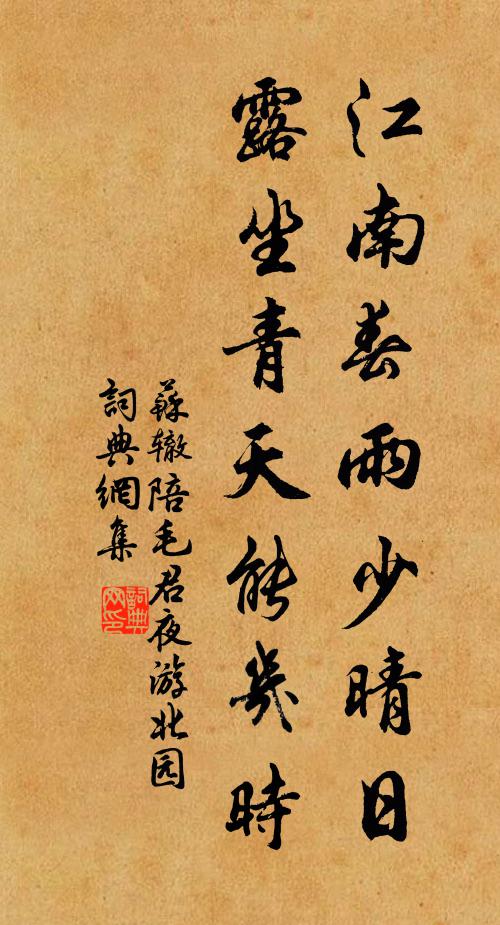 江南春雨少晴日
露坐青天能幾時
蘇辙陪毛君夜游北园
詞典網集
詞典网印